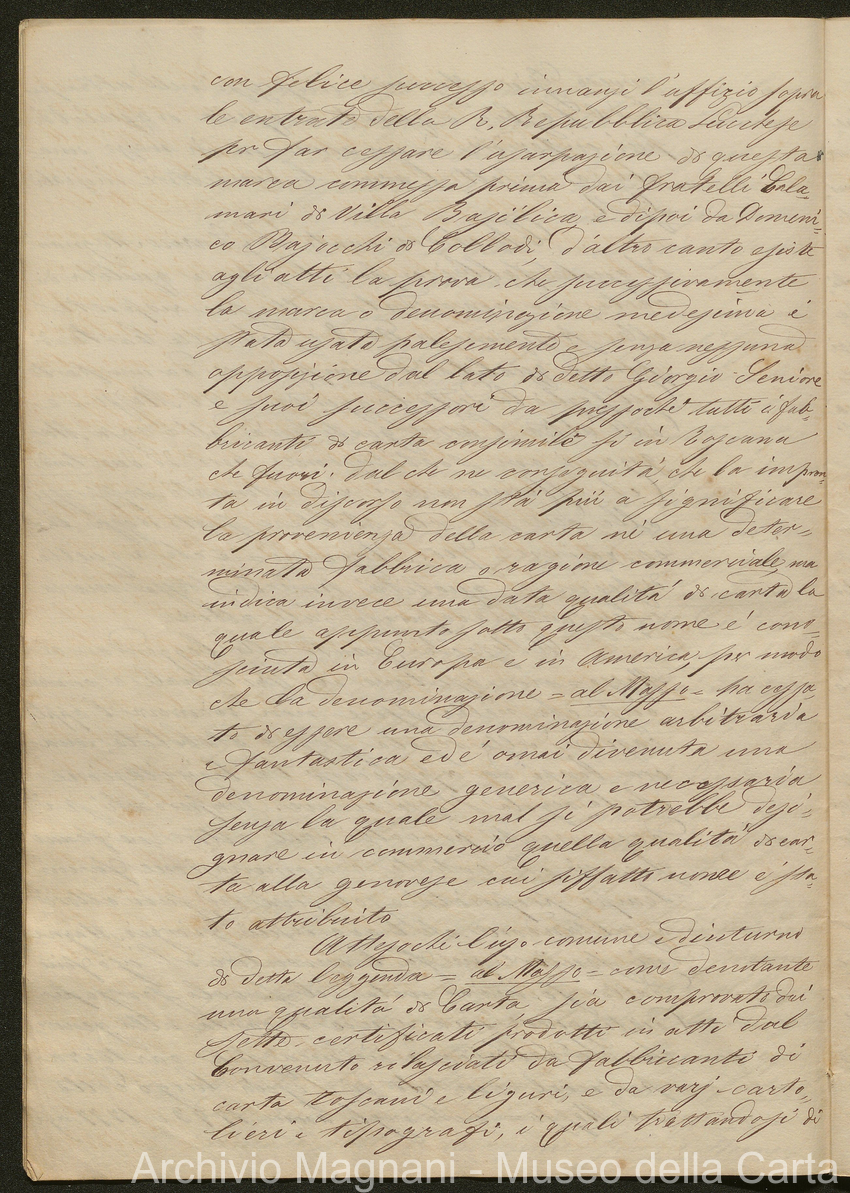 con felice successo innanzi l'uffizio sopra
le entrate della R. Repubblica Lucchese
per far cessare l'usurpazione di questa
marca commessa prima dai fratelli Cala-
mari di Villa Basilica, e dipoi da Domeni=
co Majocchi di Collodi, d'altro canto esiste
agli atti la prova che successivamente
la marca o denominazione medesima è
stata usata palesemente e senza nessuna
opposizione dal lato di detto Giorgio Seniore
e suoi successori da pressochè tutti i fab=
bricanti di carta consimile sì in Toscana
che fuori; dal che ne conseguita, che la impron=
ta in discorso non stà più a significare
la provenienza della carta nè una deter=
minata fabbrica o ragione commerciale, ma
indica invece una data qualità di carta la
quale appunto sotto questo nome è cono=
sciuta in Europa e in America, per modo
che la denominazione = al Masso = ha cessa=
to di essere una denominazione arbitraria
e fantastica ed è omai divenuta una
denominazione generica e necessaria
senza la quale mal si potrebbe desi=
gnare in commercio quella qualità di car=
ta alla genovese cui siffatto nome è sta=
to attribuito
Attesochè l'uso comune e diuturno
di detta leggenda = al Masso = come denotante
una qualità di Carta sia comprovato dai
sette certificati prodotti in atti dal
Convenuto rilasciati da fabbricanti di
carta toscani e liguri, e da varj carto=
lieri e tipografi, i quali trattandosi di
Archivio Magnani - Museo della Carta